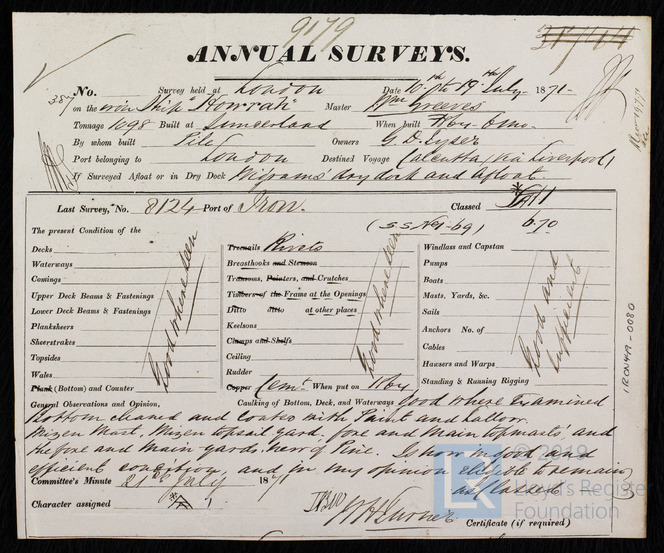 9179
ANNUAL SURVEYS.
No. 387 Survey held at London Date 10th to 19th July 1871-
on the iron Ship "Howrah" Master Wm Greaves
Tonnage 1098 Built at Sunderland When built
By whom built Pile Owners G. D. Tyser
Port belonging to London Destined Voyage Calcutta (via Liverpool)
If Surveyed Afloat or in Dry Dock Wigrams' dry dock and afloat
Last Survey, No. 8124 Port of Iron. Classed A1
(SS No1-69) 6.70
The present Condition of the
Decks
Waterways
Comings
Upper Deck Beams & Fastenings
Lower Deck Beams & Fastenings
Planksheers
Sheerstrakes
Topsides
Wales
Plank (Bottom) and Counter
Good where seen
Treenails Rivets
Breasthooks and Stemson
Transoms, Pointers, and Crutches
Timbers of the Frame at the Openings
Ditto ditto at other places
Keelsons
Clamps and Shelfs
Ceiling
Rudder
Copper Cemt. When put on
Good where seen
Windlass and Capstan
Pumps
Boats
Masts, Yards, &c.
Sails
Anchors No. of
Cables
Hausers and Warps
Standing & Running Rigging
Good and
sufficient
General Observations and Opinion, Caulking of Bottom, Deck, and Waterways Good where Examined
Bottom cleaned and coated with Paint and tallow.
Mizen Mast, Mizen topsail yard, fore and main topmasts and
the fore and main yards, new of Pine. Is now in good and
efficient condition, and in my opinion eligible to remain
as classed
Committee's Minute 21st July 1871
Character assigned A1
Certificate (if required)
IRON4A-0080
© 2019
Lloyd's Register
Foundation